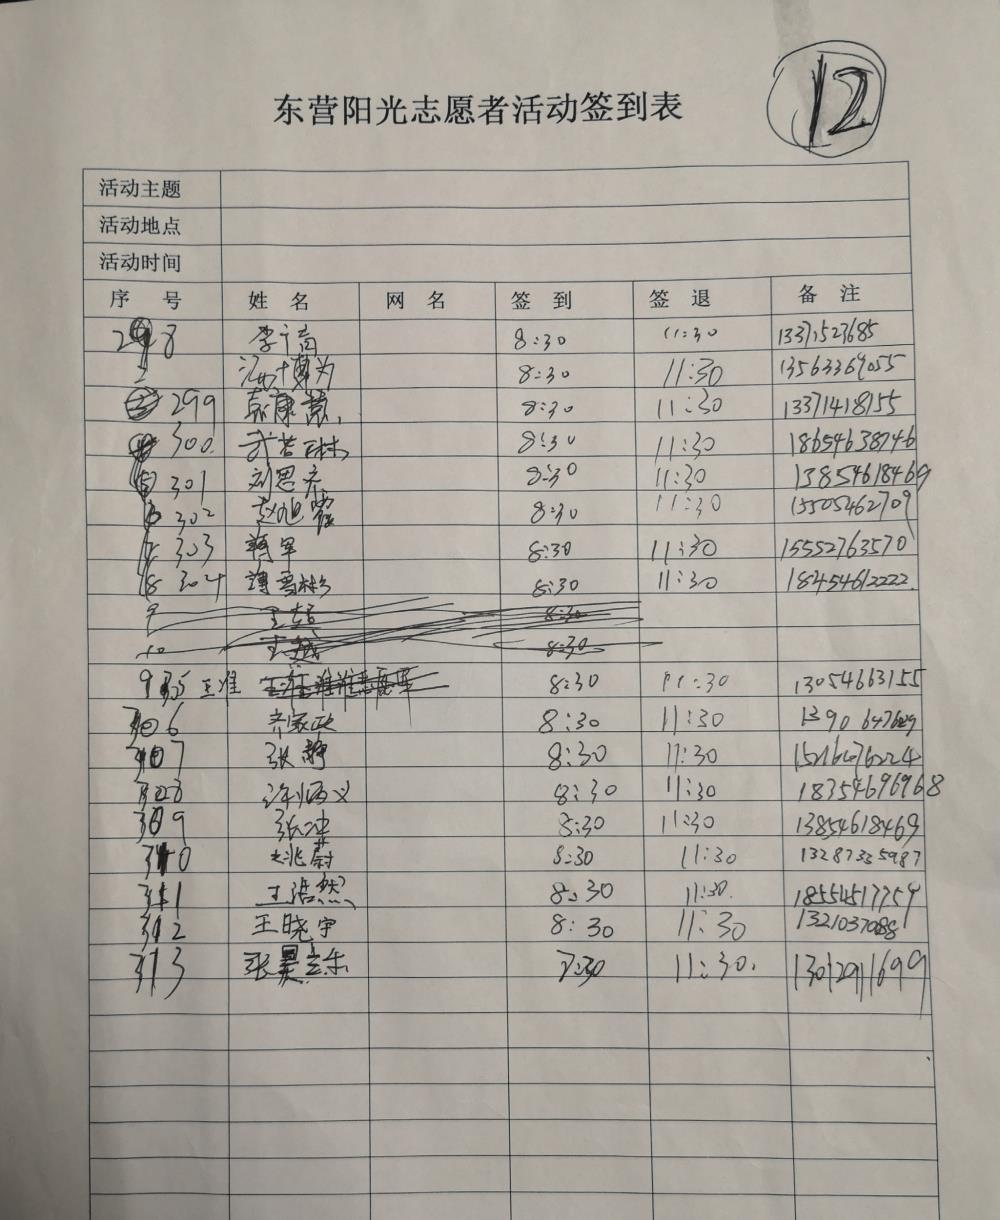 12
东营阳光志愿者活动签到表
活动主题
活动地点
活动时间
序 号 姓 名 网 名 签 到 签 退 备 注
298 8:30 11:30 13371523685
2 8:30 11:30 13563369055
299 8:30 11:30 13371418155
300 8:30 11:30 18654638746
301 刘思齐 8:30 11:30 13854618469
302 8:30 11:30 15505462709
303 蒋军 8:30 11:30 15552763570
304 8:30 11:30 18454612222.
9 8:30
10 8:30
9 王淮 8:30 11:30 13054663155
306 齐家政 8:30 11:30
307 张静 8:30 11:30
308 8:30 11:30 18354696968
309 张冲 8:30 11:30 13854618469
310 姚蔚 8:30 11:30 13287335987
311 王浩然 8:30 11:30. 18554517759
312 王晓宇 8:30 11:30 1321037088
313 7:30 11:30. 13012911699